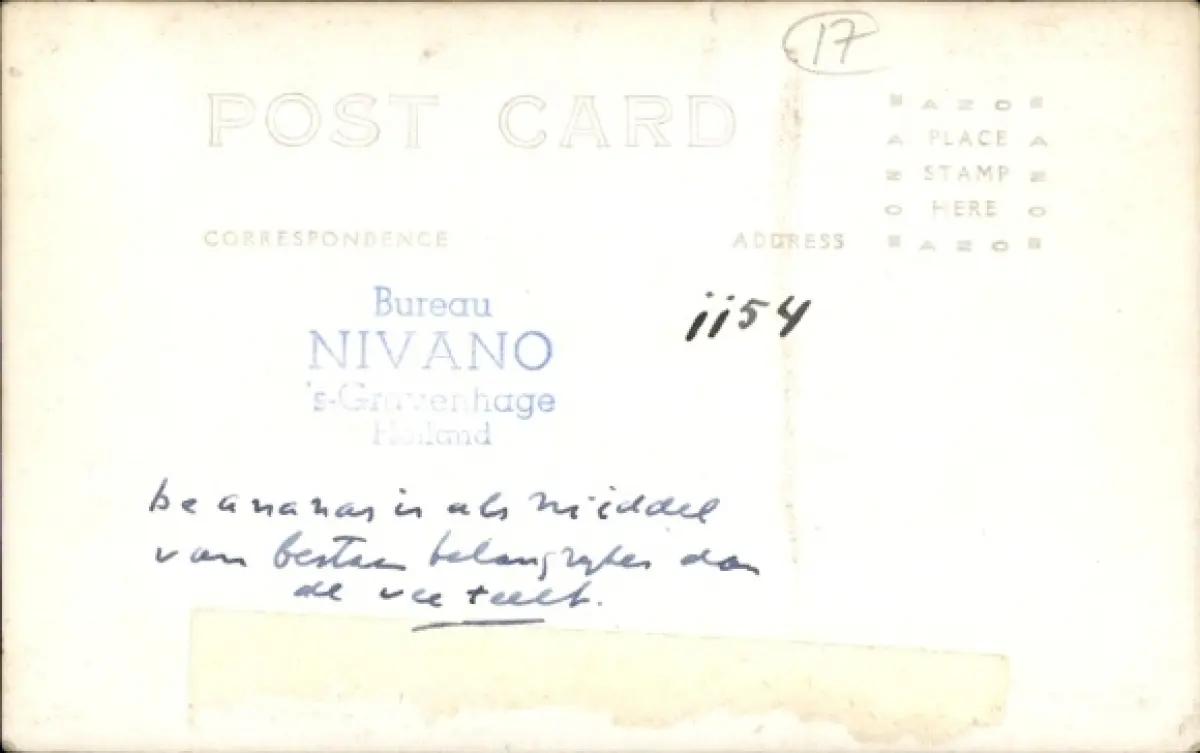 17
POST CARD
AZO
PLACE
STAMP
HERE
AZO
CORRESPONDENCE
ADDRESS
Bureau
NIVANO
's-Gravenhage
Holland
ii54
De ananas is als middel
van bestaan belangryker dan
de veeteelt.